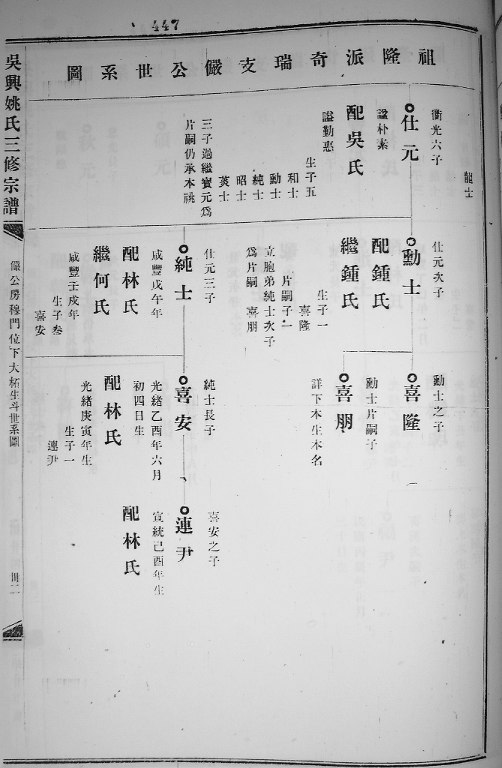 447
祖隆派奇瑞支儼公世系圖
龍士
衢光六子
仕元
諡朴素
配吳氏
諡勤惠
生子五
和士
勳士
純士
昭士
英士
三子過繼寶元爲
片嗣仍承本祧
仕元次子
勳士
配鍾氏
繼鍾氏
生子一
喜隆
片嗣子一
立胞弟純士次子
爲片嗣 喜朋
仕元三子
純士
咸豐戊午年
配林氏
繼何氏
咸豐壬戌年
生子叁
喜安
勳士之子
喜隆
勳士片嗣子
喜朋
詳下本生本名
純士長子
喜安
光緒乙酉年六月
初四日生
配林氏
光緒庚寅年生
生子一
連尹
喜安之子
連尹
宣統己酉年生
配林氏
吳興姚氏三修宗譜
儼公房穆門位下大栢生斗世系圖
卌二